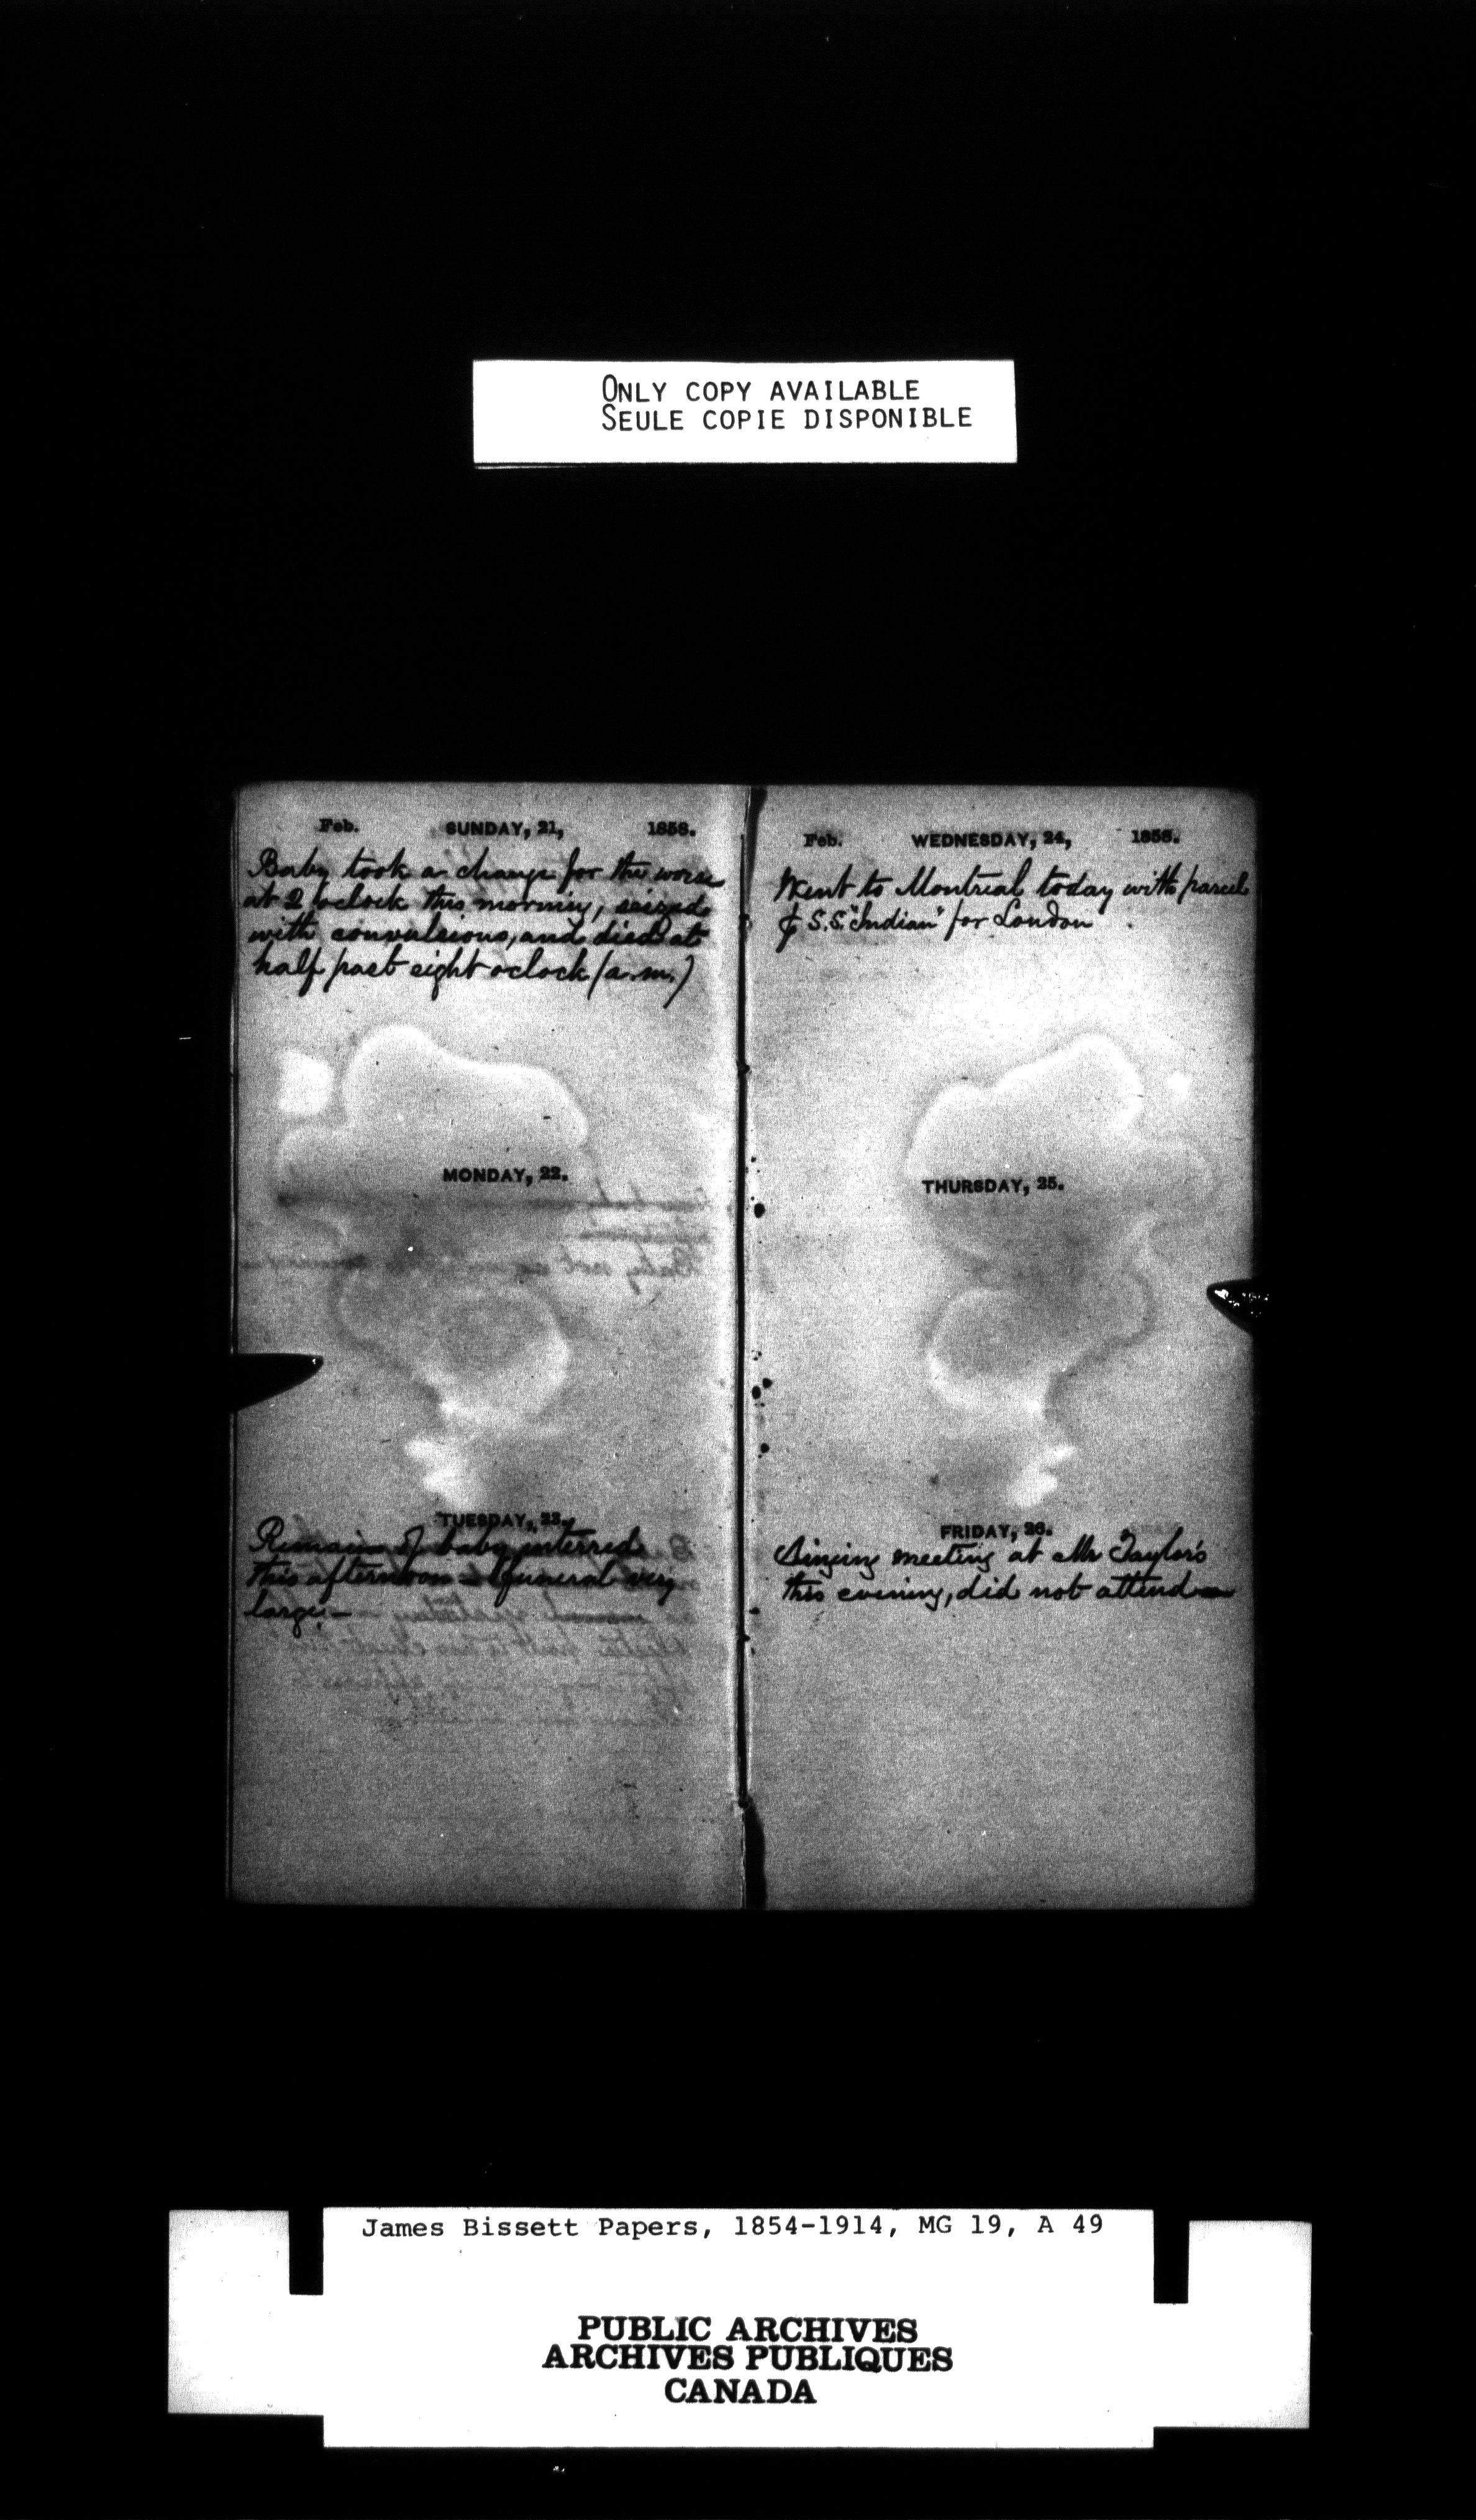 ONLY COPY AVAILABLE
SEULE COPIE DISPONIBLE
Feb. SUNDAY, 21, 1858.
Baby took a change for the worse
at 2 oclock this morning, seized
with convulsions, and died at
half past eight oclock (a.m.)
MONDAY, 22.
TUESDAY, 23.
Remains of baby interred
this afternoon - funeral very
large. -
Feb. WEDNESDAY, 24, 1858.
Went to Montreal today with parcel
S.S. "Indian" for London
THURSDAY, 25.
FRIDAY, 26.
Singing meeting at Mr Taylor's
this evening, did not attend
James Bissett Papers, 1854-1914, MG 19, A 49
PUBLIC ARCHIVES
ARCHIVES PUBLIQUES
CANADA